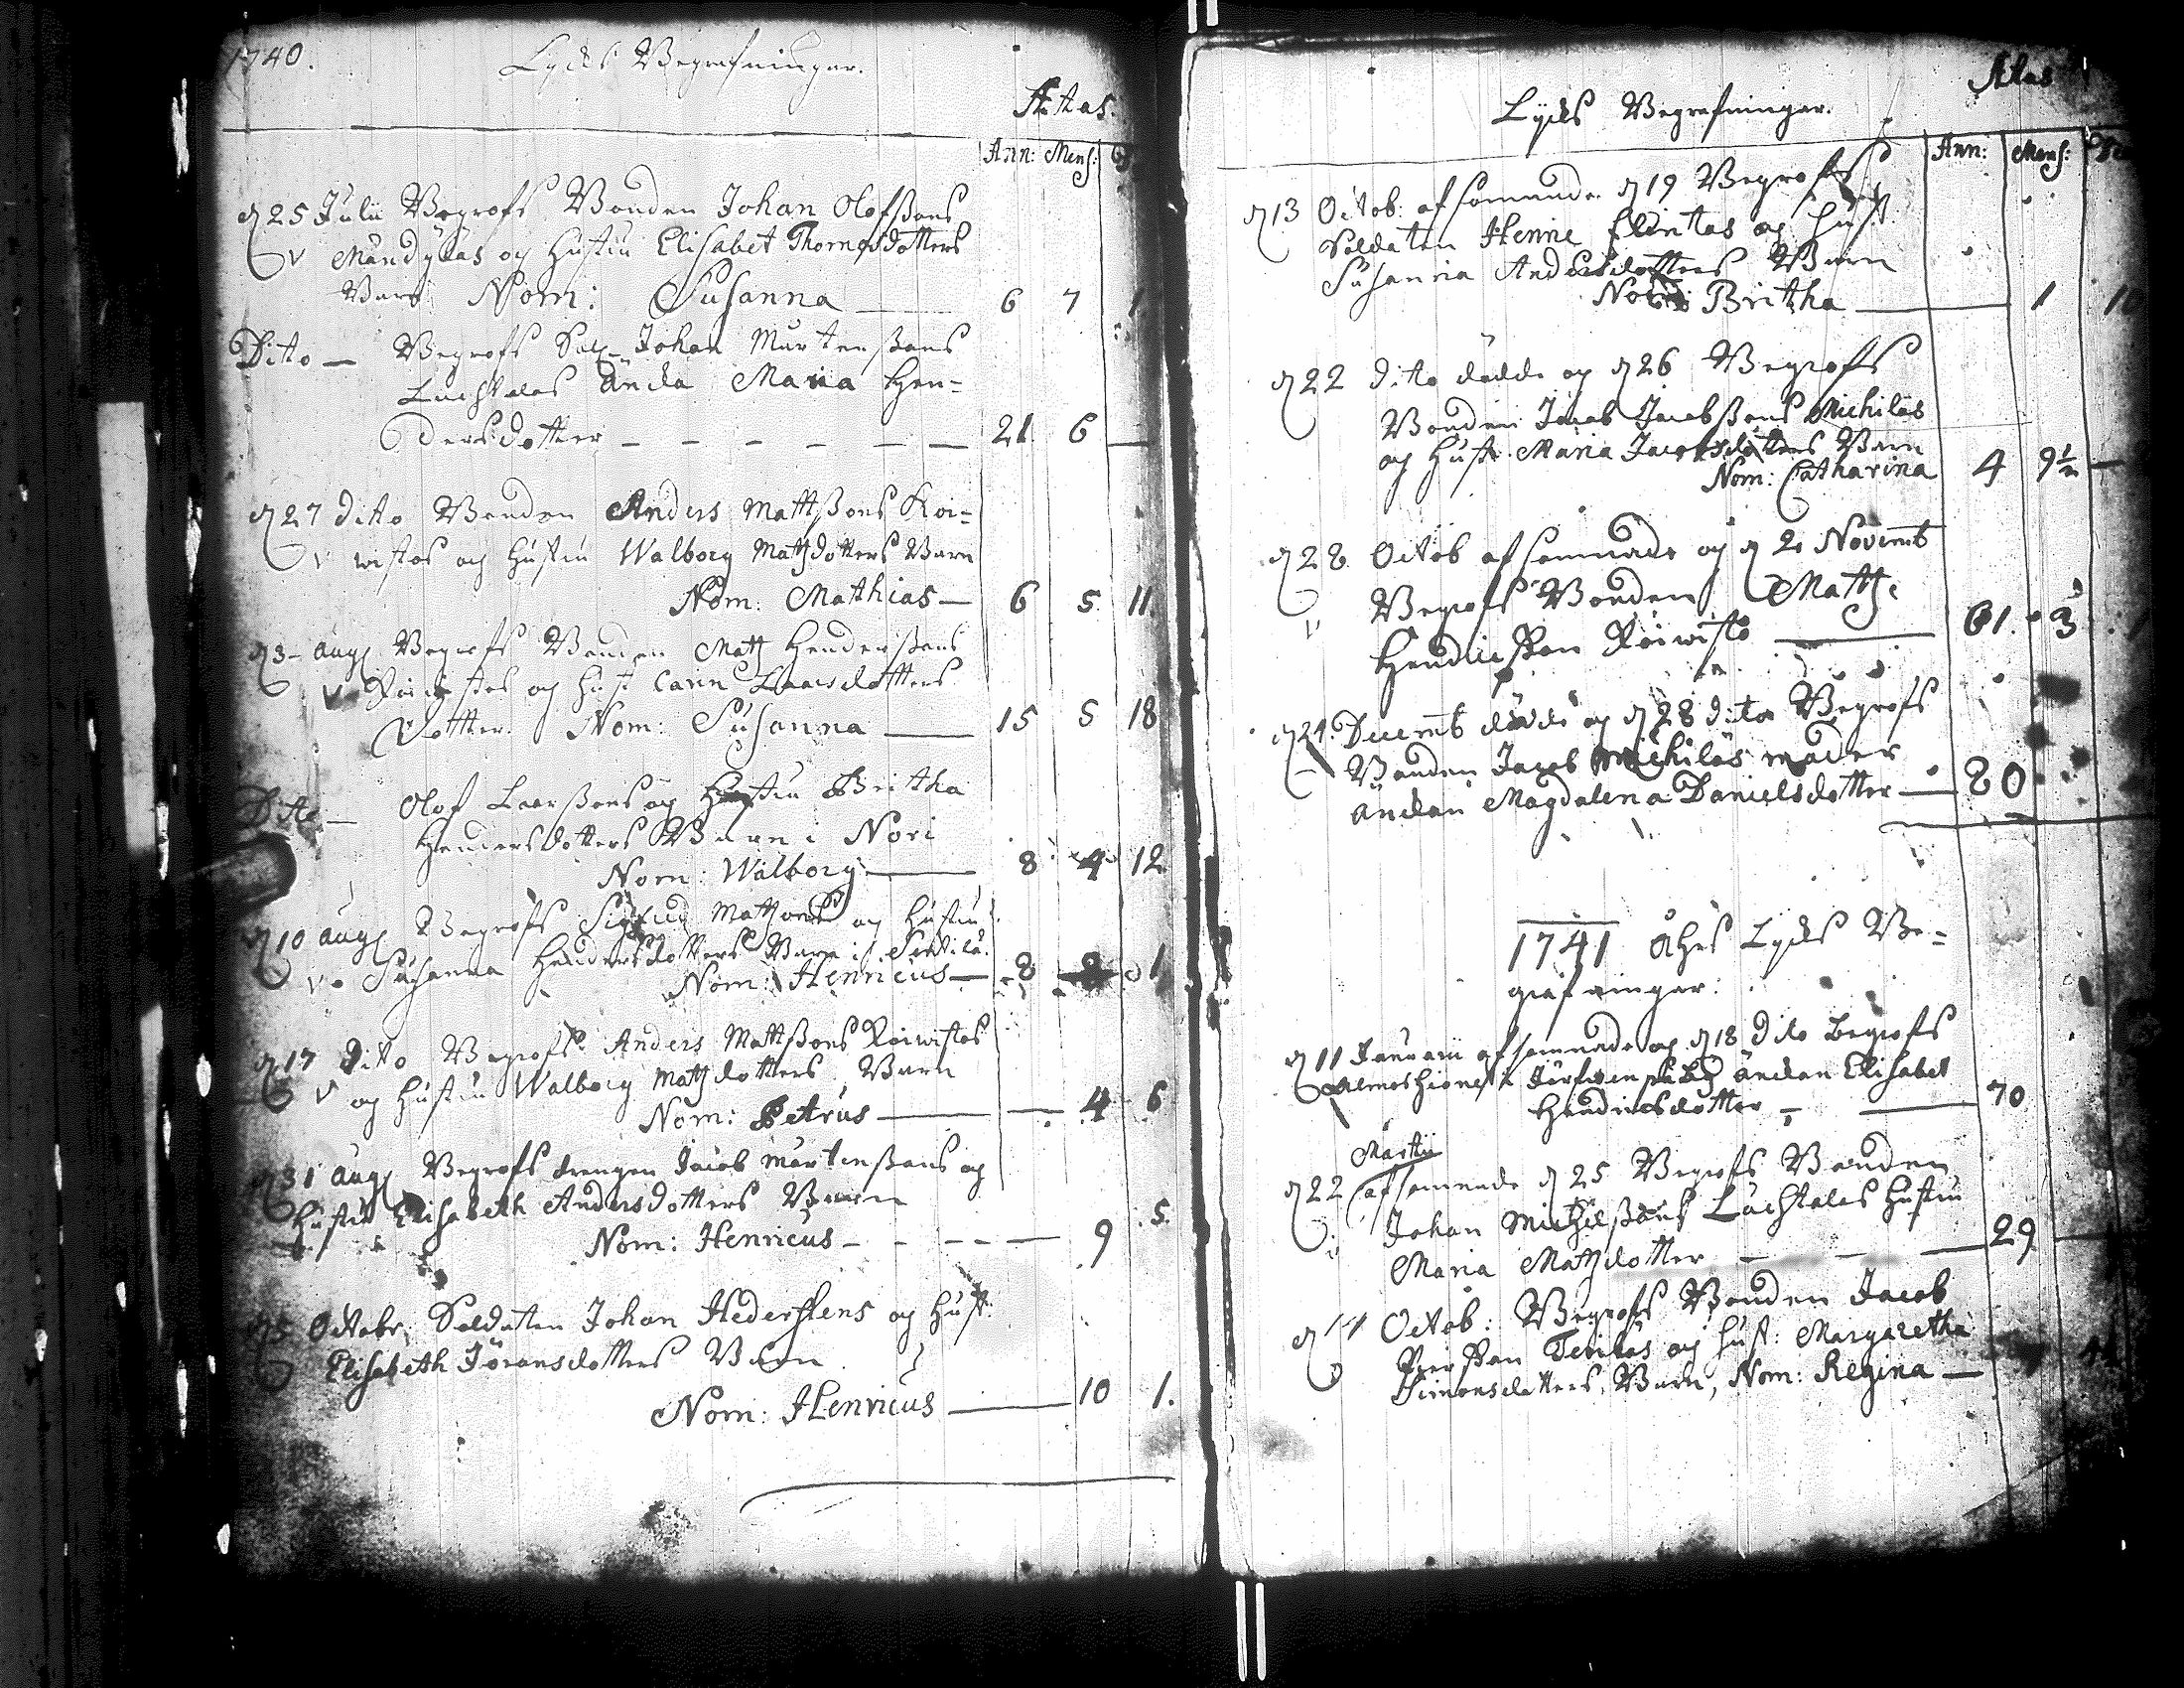 1740. Lycks Begrafningar.
Ætas.
Ann: Mens: D
d 25 Julii Begrofs Bonden Johan Olofssons
v Mändyläs og hustru Elisabet Thomædotters
Barn Nom: Susanna — 6 7 1
Dito — Begrofs Sal. Johan Mårtenssons
Luchtalas änka Maria Hen-
dersdotter — — — — — — 21 6 —
d 27 dito Bonden Anders Mattssons Koi-
v wistos og hustru Walborg Mattsdotters Barn
Nom: Mathias — 6 5 11
d 3 Aug Begrofs Bonden Matts Henderssons
v Koiwistos og hust Carin Larsdotters
Dotter Nom: Susanna — 15 5 18
Dito — Olof Larssons og Hustru Britha
Hendersdotters Barn i Nori
Nom: Walborg — 8 4 12
d 10 Aug Begrofs Sigfrid Matssons og hustru
v Susanna Hendersdotters Barn i
Nom: Henricus — 8 1
d 17 Dito Begrofs Anders Mattssons Koiwistos
v og hustru Walborg Mattsdotters Barn
Nom: Petrus — — 4 6
d 31 Aug Begrofs drengen Jacob Mårtenssons og
hustru Elisabeth Andersdotters Barn
Nom: Henricus — — — — 9 5.
d 5 Octobr. Soldaten Johan Hederstens og hust:
Elisabeth Jöransdotters Barn
Nom: Henricus — 10 1.
Ætas
Lycks Begrafningar.
Ann: Mens:
d 13 Octob: afsomnade d 19 Begrofs
Soldaten Henric Flintas og hust
Susanna Andersdotters Barn
Nom: Britha — 1
d 22 dito dödde og d 26 Begrofs
Bonden Jacob Jacobssons Michiläs
og hustr. Maria Jacobsdotters Barn
Nom: Catharina 4 9½ —
d 28 Octob afsomnade og d 2 Novemb
Begrofs Bonden Matts
v Hendricsson Koiwisto — 61. 3
d 24. Decemb dödde og d 28 dito Begrofs
Bonden Jacob Michiläs moder
änckan Magdalena Danielsdotter — 80
1741 åhrs Lycks Be-
grafningar:
d 11 Januarii afsomnade og d 18 Dito Begrofs
änckan Elisabet
Hendricsdotter — — 70
Martii
d 22 afsomnade d 25 Begrofs Bonden
v Johan Michelssons Luchtalas hustru
Maria Mattsdotter — — — 29 —
d 14 Octob: Begrofs Bonden Jacob
Persson og hust: Margaretha
Simonsdotters Barn, Nom: Regina —